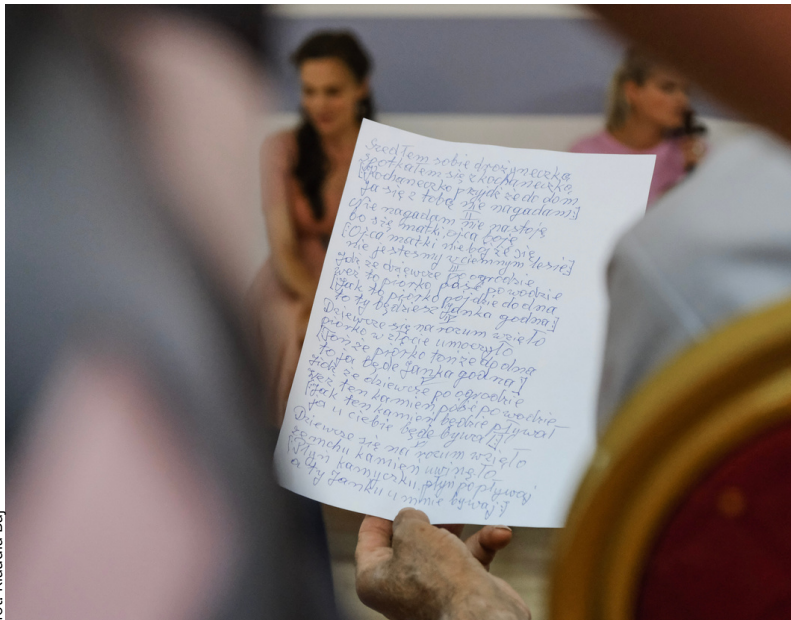 Szedłem sobie dróżyneczką
spotkałem się z kochaneczką
[Kochaneczko przyjdź że do dom
ja się z tobą nie nagadam]
II
Nie nagadam nie nastoję
bo się matki ojca boję
[Ojca matki nie bój że się
nie jesteśmy w ciemnym lesie]
III
Idź że dziewcze po ogrodzie
weź to piórko puść po wodzie
[Jak to piórko pójdzie do dna
to ty będziesz Janka godna]
IV
Dziewcze się na rozum wzięło
piórko w złocie umoczyło
[Toń że piórko toń że do dna
to ja będę Janka godna]
V
Idź że dziewcze po ogrodzie
weź ten kamień puść po wodzie
[Jak ten kamień będzie pływał
ja u ciebie będę bywał]
VI
Dziewcze się na rozum wzięło
ze mchu kamień uwinęło
[Płyń kamyczku, płyń popływaj
a ty Janku u mnie bywaj]